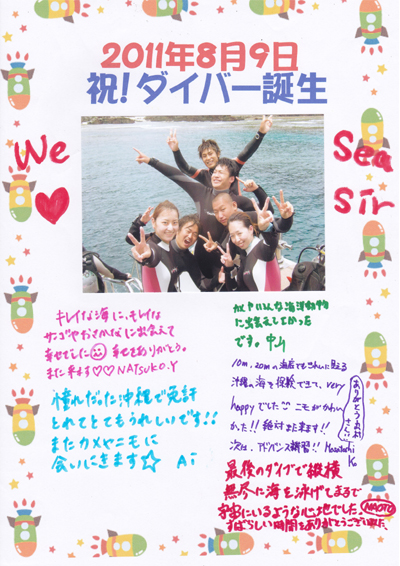 2011年8月9日
祝!ダイバー誕生
We
♥
Sea
Sir
キレイな海に、キレイな
サンゴやおさかなに出会えて
幸せでした 幸せをありがとう。
また来ます♡♡ NATSUKO.Y
憧れだった沖縄で免許
とれてとてもうれしいです!!
またカメやニモに
会いにきます☆ Ai
に出会えてよかった
です。中山
10m、20mの海底でもきれいに見える
沖縄の海を探検できて、very
happyでした 
かった!! 絶対また来ます!!
次は、アドバンス講習!! Masatoshi
K.
ありがとう
最後のダイブで縦横
無尽に海を泳げてまるで
宇宙にいるような心地でした。NAOTO
すばらしい時間をありがとうございました。